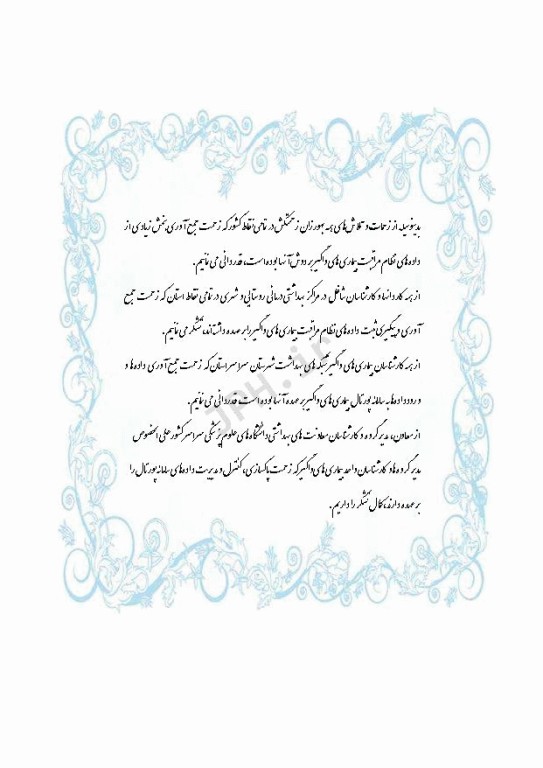 بدینوسیله از زحمات و تلاش های همه بهورزان زحمتکش در تمامی نقاط کشور که زحمت جمع آوری بخش زیادی از
داده های نظام مراقبت بیماری های واگیر بر دوش آنها بوده است، قدردانی می نمائیم.
از همه کاردانها و کارشناسان شاغل در مراکز بهداشتی درمانی روستایی و شهری در تمامی نقاط استان که زحمت جمع
آوری و پیگیری ثبت داده های نظام مراقبت بیماری های واگیر را بر عهده داشتند، تشکر می نمائیم.
از همه کارشناسان بیماری های واگیر شبکه های بهداشت شهرستان سراسر استان که زحمت جمع آوری داده ها و
ورود داده ها به سامانه پورتال بیماری های واگیر بر عهده آنها بوده است قدردانی می نمائیم.
از معاون، مدیر گروه و کارشناسان معاونت های بهداشتی دانشگاه های علوم پزشکی سراسر کشور علی الخصوص
مدیر گروه ها و کارشناسان واحد بیماری های واگیر که زحمت پاکسازی، کنترل و مدیریت داده های سامانه پورتال را
بر عهده دارند، کمال تشکر را داریم.
JPH.ir